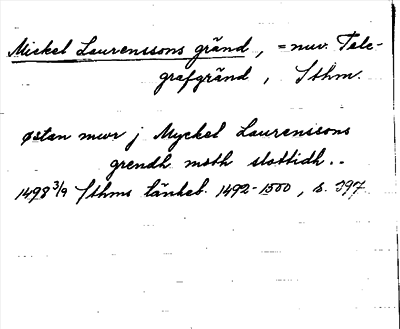 Mickel Laurenssons gränd, = nuv. Tele-
grafgränd, Sthm.
østan mwr j Myckel Laurenssons
grendh moth slottidh..
1498 3/9 Sthms tänkeb. 1492-1500, s. 397